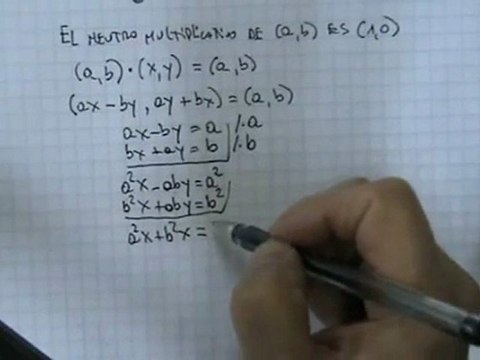 EL NEUTRO MULTIPLICATIVO DE (a,b) ES (1,0)
(a,b)·(x,y) = (a,b)
(ax-by, ay+bx) = (a,b)
ax-by = a /·a
bx+ay = b /·b
a²x-aby = a²
b²x+aby = b²
a²x+b²x =